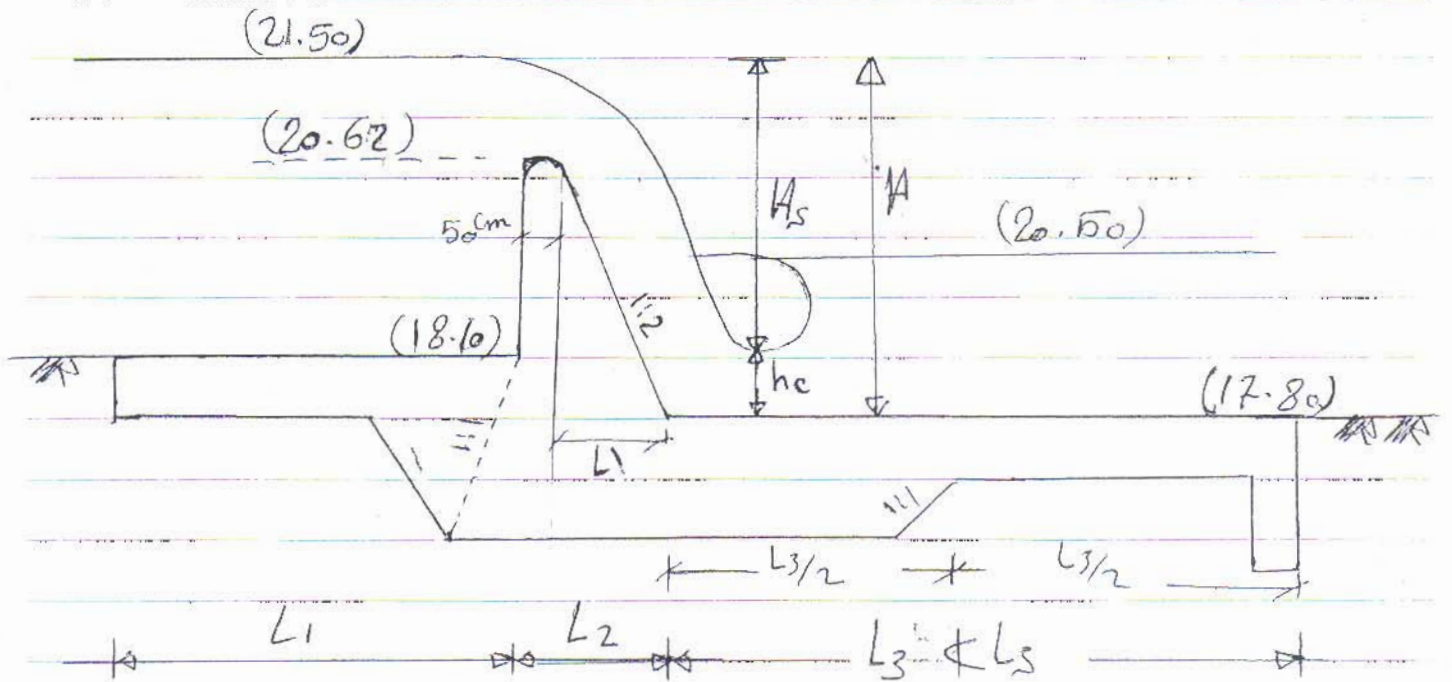 (21.50)
(20.62)
Hs
H
50cm
(20.50)
1:2
(18.10)
hc
(17.80)
1:1
L1
1:1
L3/2
L3/2
L1
L2
L3 ≮ Ls